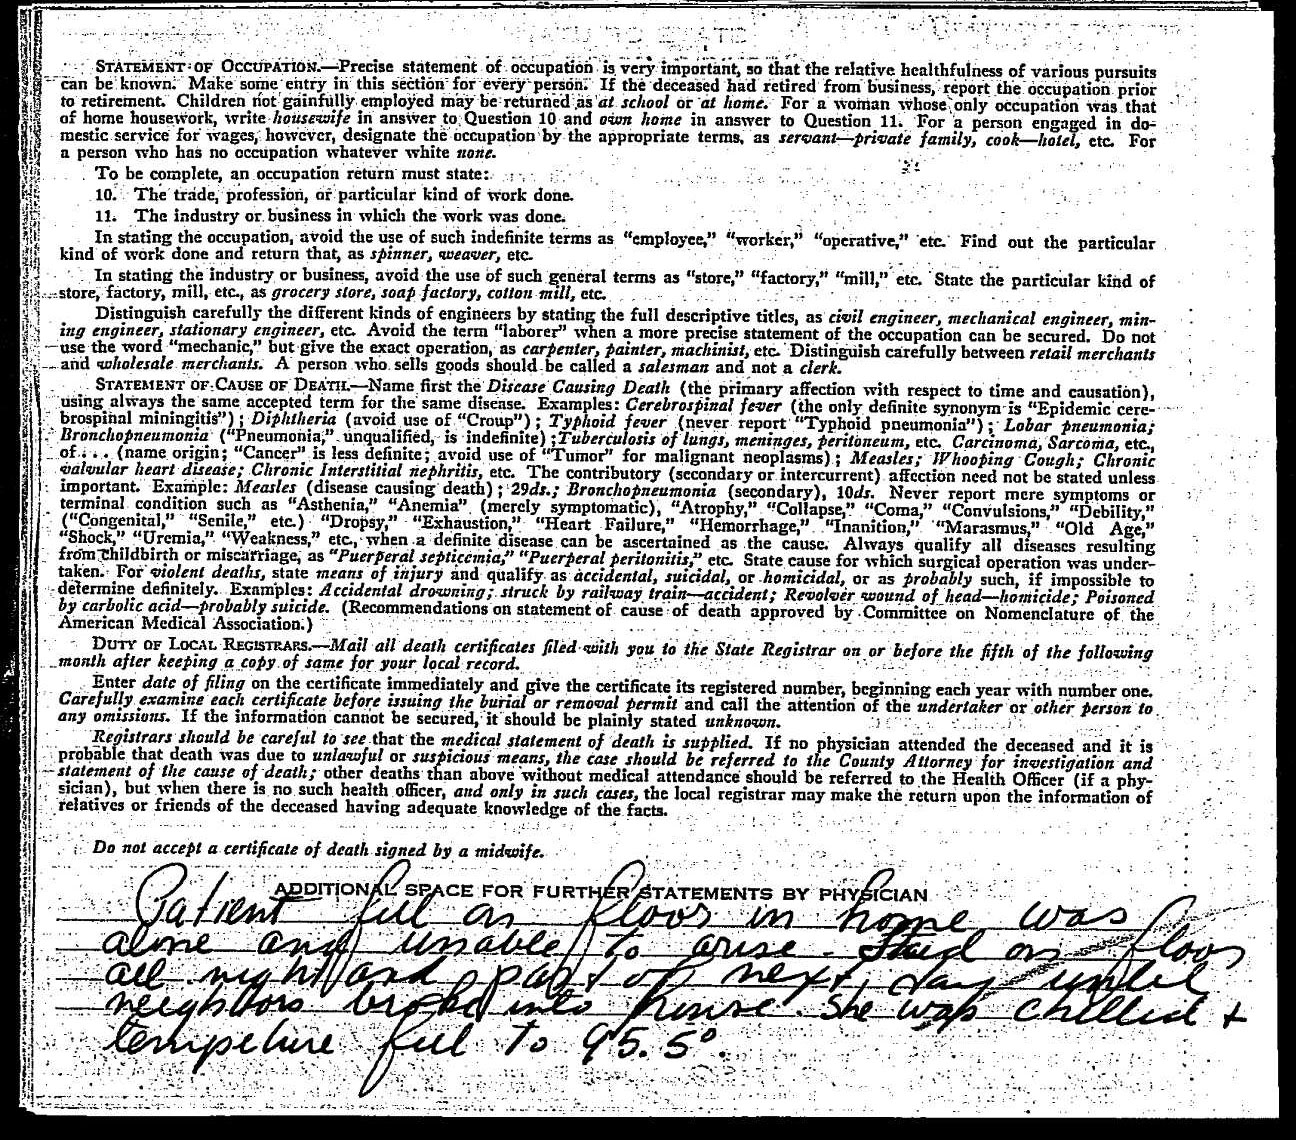 STATEMENT OF OCCUPATION.—Precise statement of occupation is very important, so that the relative healthfulness of various pursuits
can be known. Make some entry in this section for every person. If the deceased had retired from business, report the occupation prior
to retirement. Children not gainfully employed may be returned as at school or at home. For a woman whose only occupation was that
of home housework, write housewife in answer to Question 10 and own home in answer to Question 11. For a person engaged in do-
mestic service for wages, however, designate the occupation by the appropriate terms, as servant—private family, cook—hotel, etc. For
a person who has no occupation whatever white none.
To be complete, an occupation return must state:
10. The trade, profession, or particular kind of work done.
11. The industry or business in which the work was done.
In stating the occupation, avoid the use of such indefinite terms as “employee,” “worker,” “operative,” etc. Find out the particular
kind of work done and return that, as spinner, weaver, etc.
In stating the industry or business, avoid the use of such general terms as “store,” “factory,” “mill,” etc. State the particular kind of
store, factory, mill, etc., as grocery store, soap factory, cotton mill, etc.
Distinguish carefully the different kinds of engineers by stating the full descriptive titles, as civil engineer, mechanical engineer, min-
ing engineer, stationary engineer, etc. Avoid the term “laborer” when a more precise statement of the occupation can be secured. Do not
use the word “mechanic,” but give the exact operation, as carpenter, painter, machinist, etc. Distinguish carefully between retail merchants
and wholesale merchants. A person who sells goods should be called a salesman and not a clerk.
STATEMENT OF CAUSE OF DEATH.—Name first the Disease Causing Death (the primary affection with respect to time and causation),
using always the same accepted term for the same disease. Examples: Cerebrospinal fever (the only definite synonym is “Epidemic cere-
brospinal miningitis”); Diphtheria (avoid use of “Croup”); Typhoid fever (never report “Typhoid pneumonia”); Lobar pneumonia;
Bronchopneumonia (“Pneumonia,” unqualified, is indefinite); Tuberculosis of lungs, meninges, peritoneum, etc. Carcinoma, Sarcoma, etc.,
of . . . (name origin; “Cancer” is less definite; avoid use of “Tumor” for malignant neoplasms); Measles; Whooping Cough; Chronic
valvular heart disease; Chronic Interstitial nephritis, etc. The contributory (secondary or intercurrent) affection need not be stated unless
important. Example: Measles (disease causing death); 29ds.; Bronchopneumonia (secondary), 10ds. Never report mere symptoms or
terminal condition such as “Asthenia,” “Anemia” (merely symptomatic), “Atrophy,” “Collapse,” “Coma,” “Convulsions,” “Debility,”
(“Congenital,” “Senile,” etc.) “Dropsy,” “Exhaustion,” “Heart Failure,” “Hemorrhage,” “Inanition,” “Marasmus,” “Old Age,”
“Shock,” “Uremia,” “Weakness,” etc., when a definite disease can be ascertained as the cause. Always qualify all diseases resulting
from childbirth or miscarriage, as “Puerperal septicemia,” “Puerperal peritonitis,” etc. State cause for which surgical operation was under-
taken. For violent deaths, state means of injury and qualify as accidental, suicidal, or homicidal, or as probably such, if impossible to
determine definitely. Examples: Accidental drowning; struck by railway train—accident; Revolver wound of head—homicide; Poisoned
by carbolic acid—probably suicide. (Recommendations on statement of cause of death approved by Committee on Nomenclature of the
American Medical Association.)
DUTY OF LOCAL REGISTRARS.—Mail all death certificates filed with you to the State Registrar on or before the fifth of the following
month after keeping a copy of same for your local record.
Enter date of filing on the certificate immediately and give the certificate its registered number, beginning each year with number one.
Carefully examine each certificate before issuing the burial or removal permit and call the attention of the undertaker or other person to
any omissions. If the information cannot be secured, it should be plainly stated unknown.
Registrars should be careful to see that the medical statement of death is supplied. If no physician attended the deceased and it is
probable that death was due to unlawful or suspicious means, the case should be referred to the County Attorney for investigation and
statement of the cause of death; other deaths than above without medical attendance should be referred to the Health Officer (if a phy-
sician), but when there is no such health officer, and only in such cases, the local registrar may make the return upon the information of
relatives or friends of the deceased having adequate knowledge of the facts.
Do not accept a certificate of death signed by a midwife.
ADDITIONAL SPACE FOR FURTHER STATEMENTS BY PHYSICIAN
Patient fell on floor in home was
alone and unable to arise. Staid on floor
all night and part of next day until
neighbors broke into house. She was chilled +
tempeture fell to 95.5°.